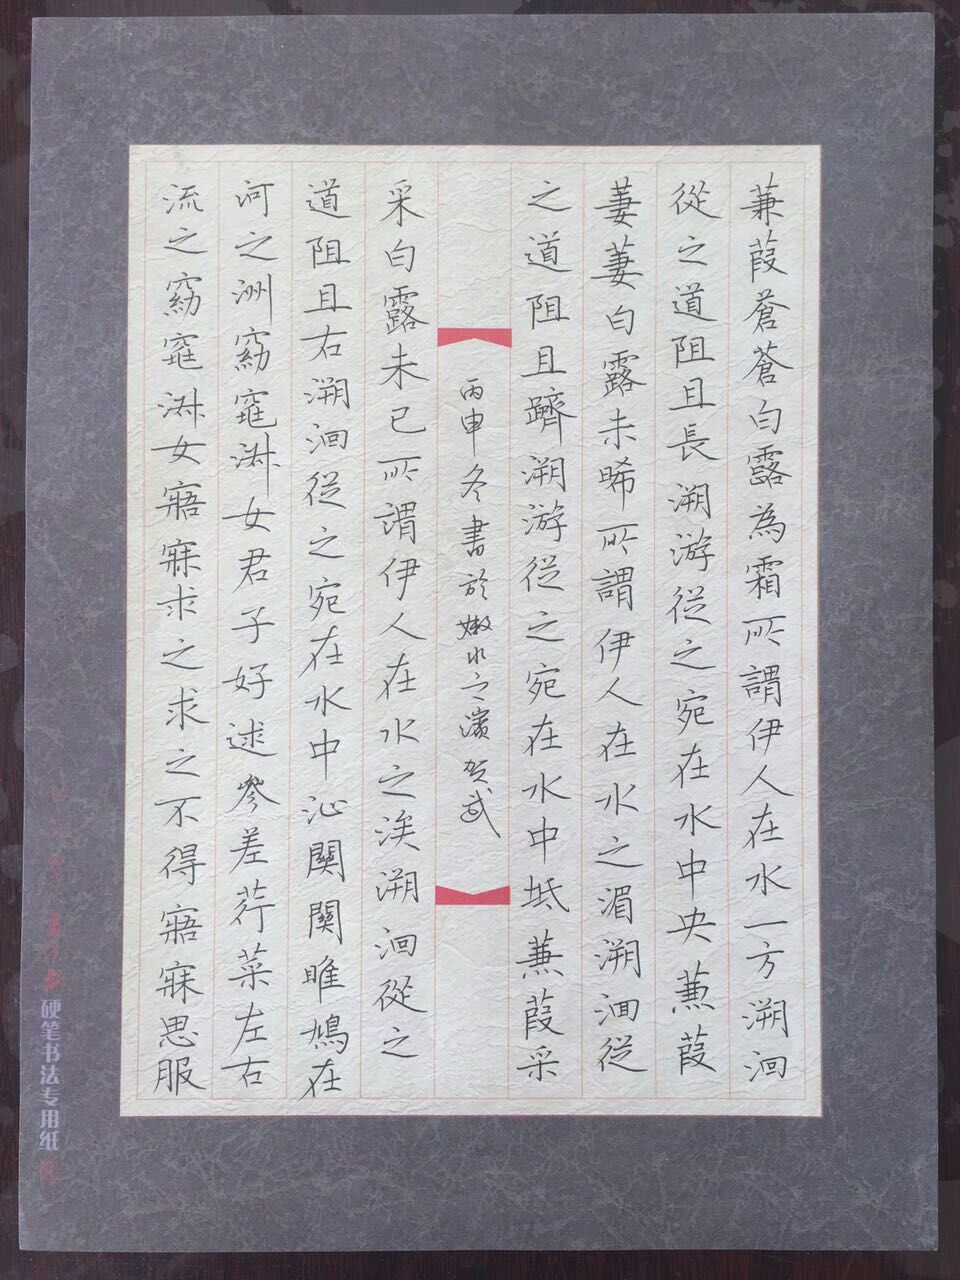 蒹葭蒼蒼白露為霜所謂伊人在水一方溯洄
從之道阻且長溯游從之宛在水中央蒹葭
萋萋白露未晞所謂伊人在水之湄溯洄從
之道阻且躋溯游從之宛在水中坻蒹葭采
丙申冬書於嫩水之濱贺武
采白露未已所謂伊人在水之涘溯洄從之
道阻且右溯洄從之宛在水中沁關關雎鳩在
河之洲窈窕淋女君子好逑參差荇菜左右
流之窈窕淋女寤寐求之求之不得寤寐思服
硬笔书法专用纸